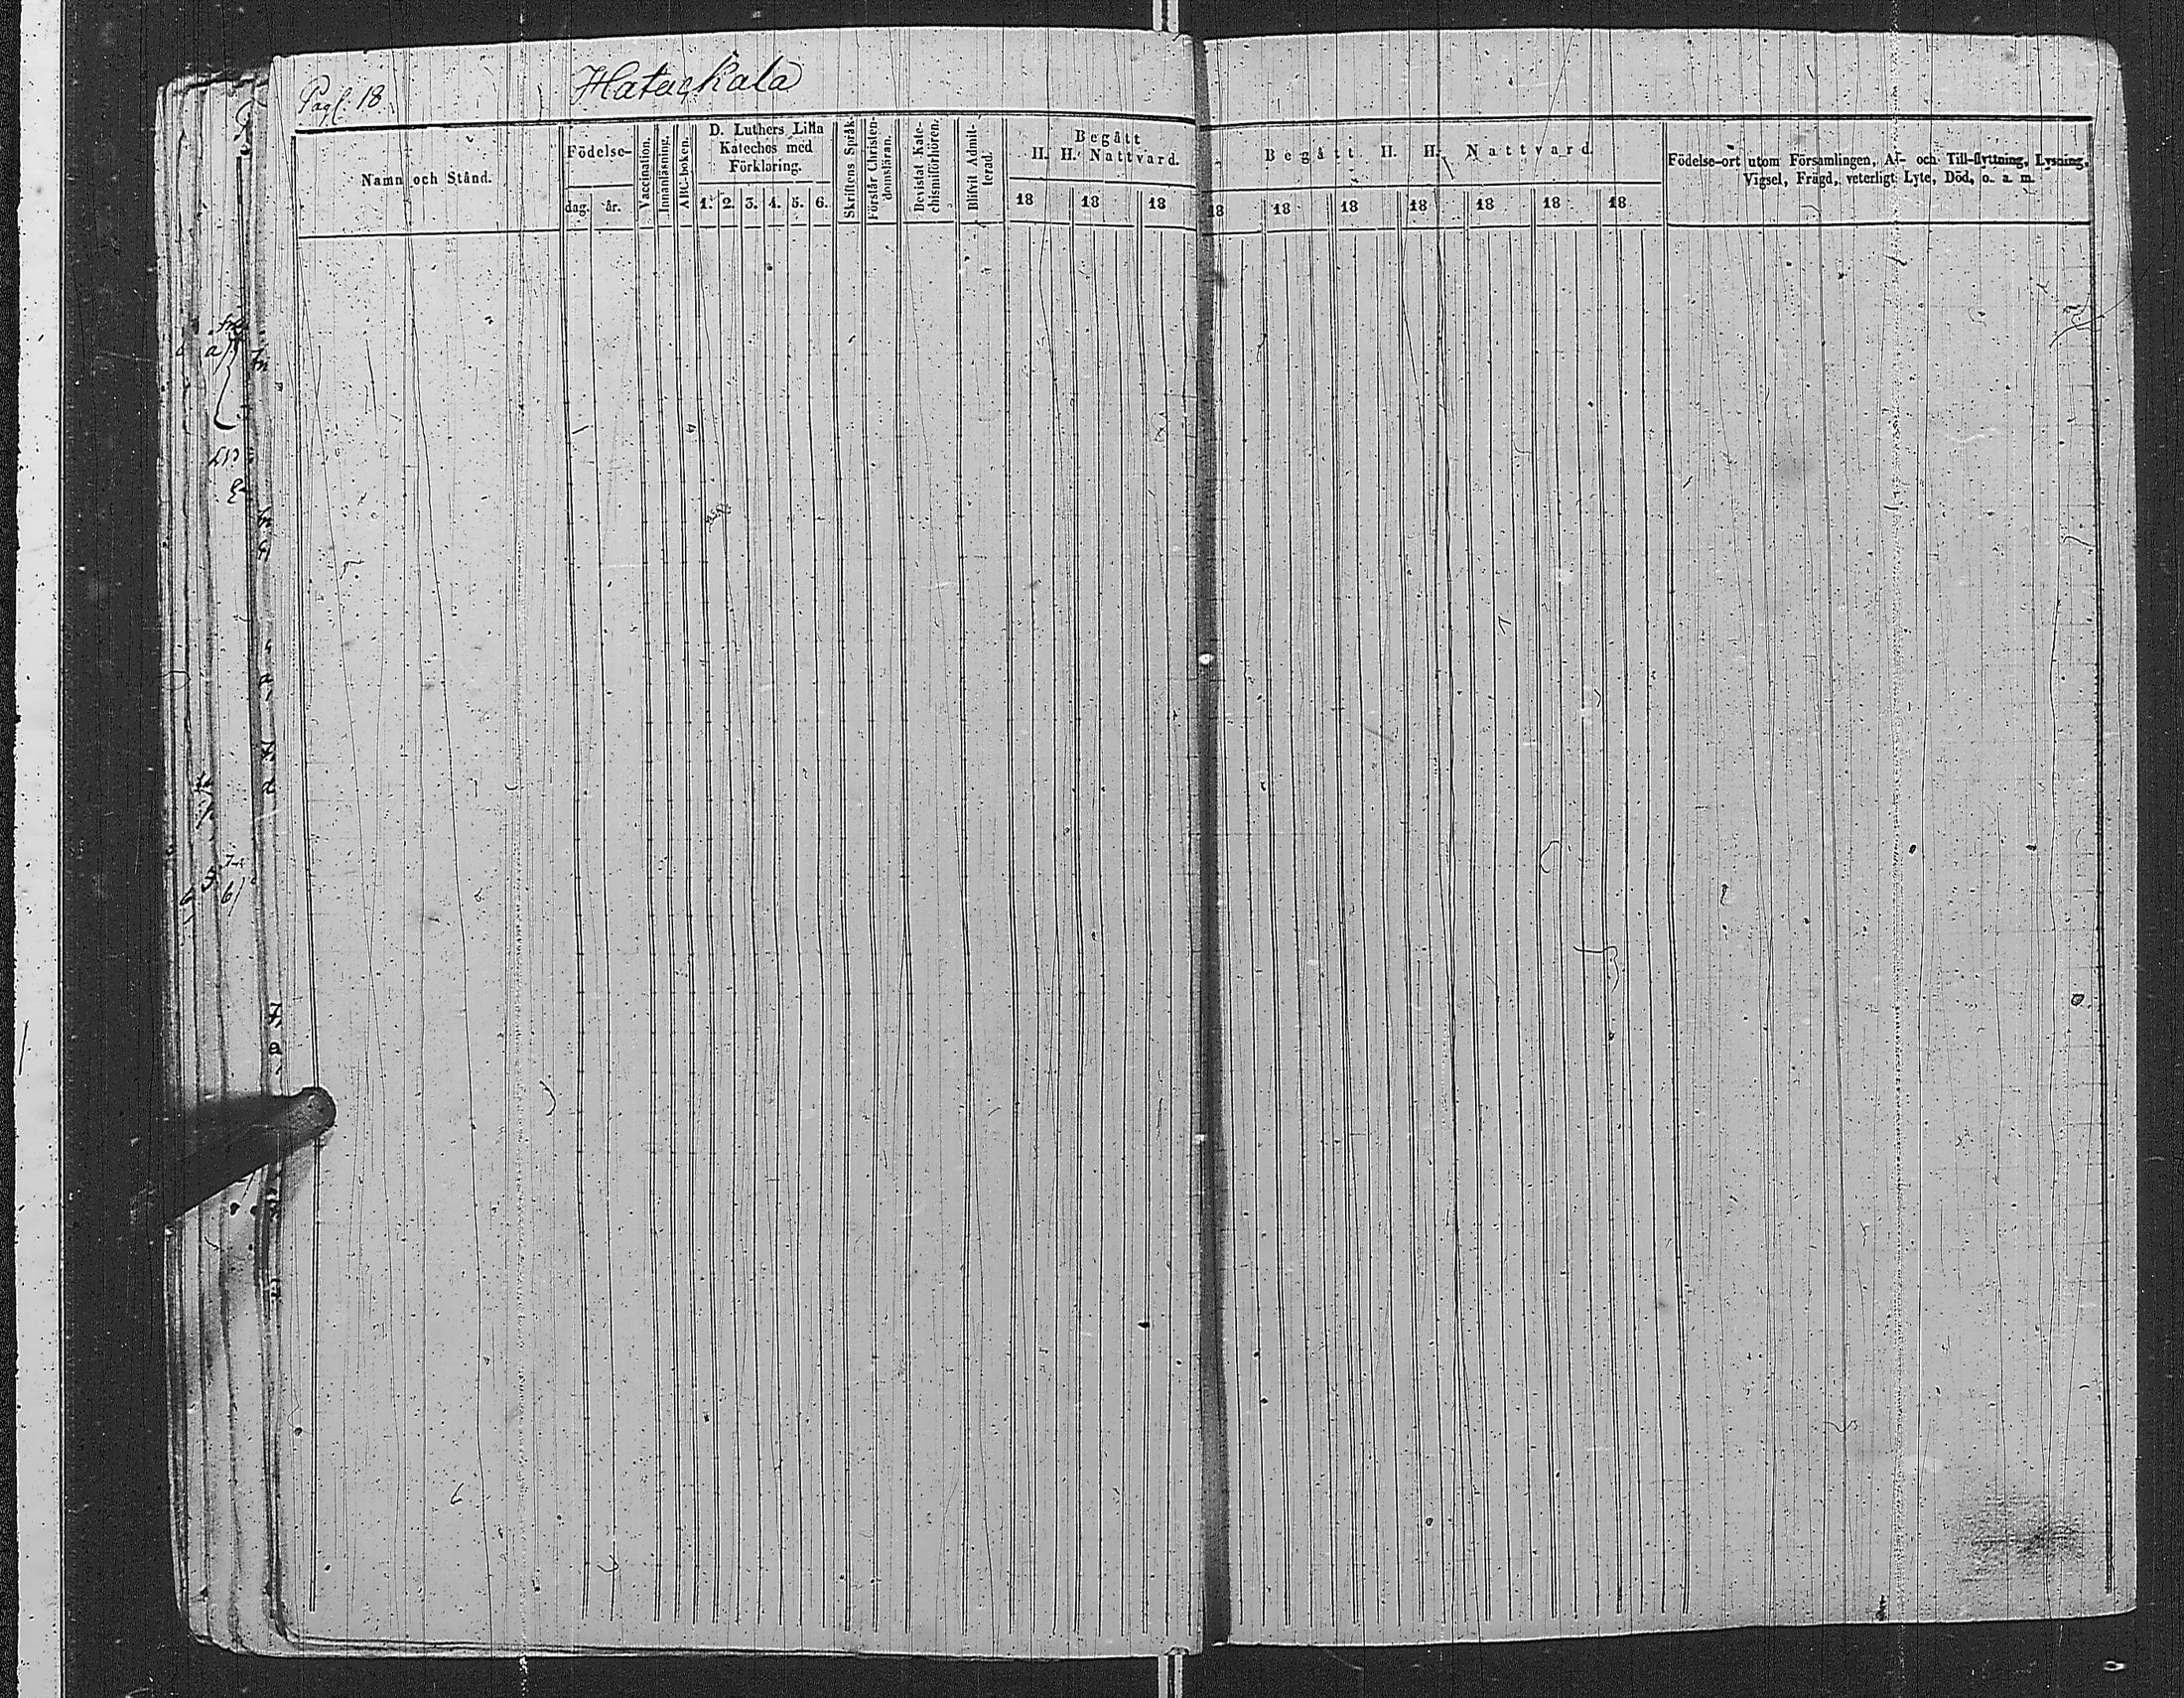 Pag. 18. Hatakkala
Namn och Stånd.
Födelse-
dag. år.
Vaccination.
Innanläsning.
ABC-boken.
D. Luthers Lilla
Kateches med
Förklaring.
1. 2. 3. 4. 5. 6.
Skriftens Språk.
Förstår Christen-
domsläran.
Bevistat Kate-
chismiförhören.
Blifvit Admit-
terad.
Begått
H. H. Nattvard.
18 18 18
Begått H. H. Nattvard.
18 18 18 18 18 18 18
Födelse-ort utom Församlingen, Af- och Till-flyttning, Lysning,
Vigsel, Frägd, veterligt Lyte, Död, o. a. m.